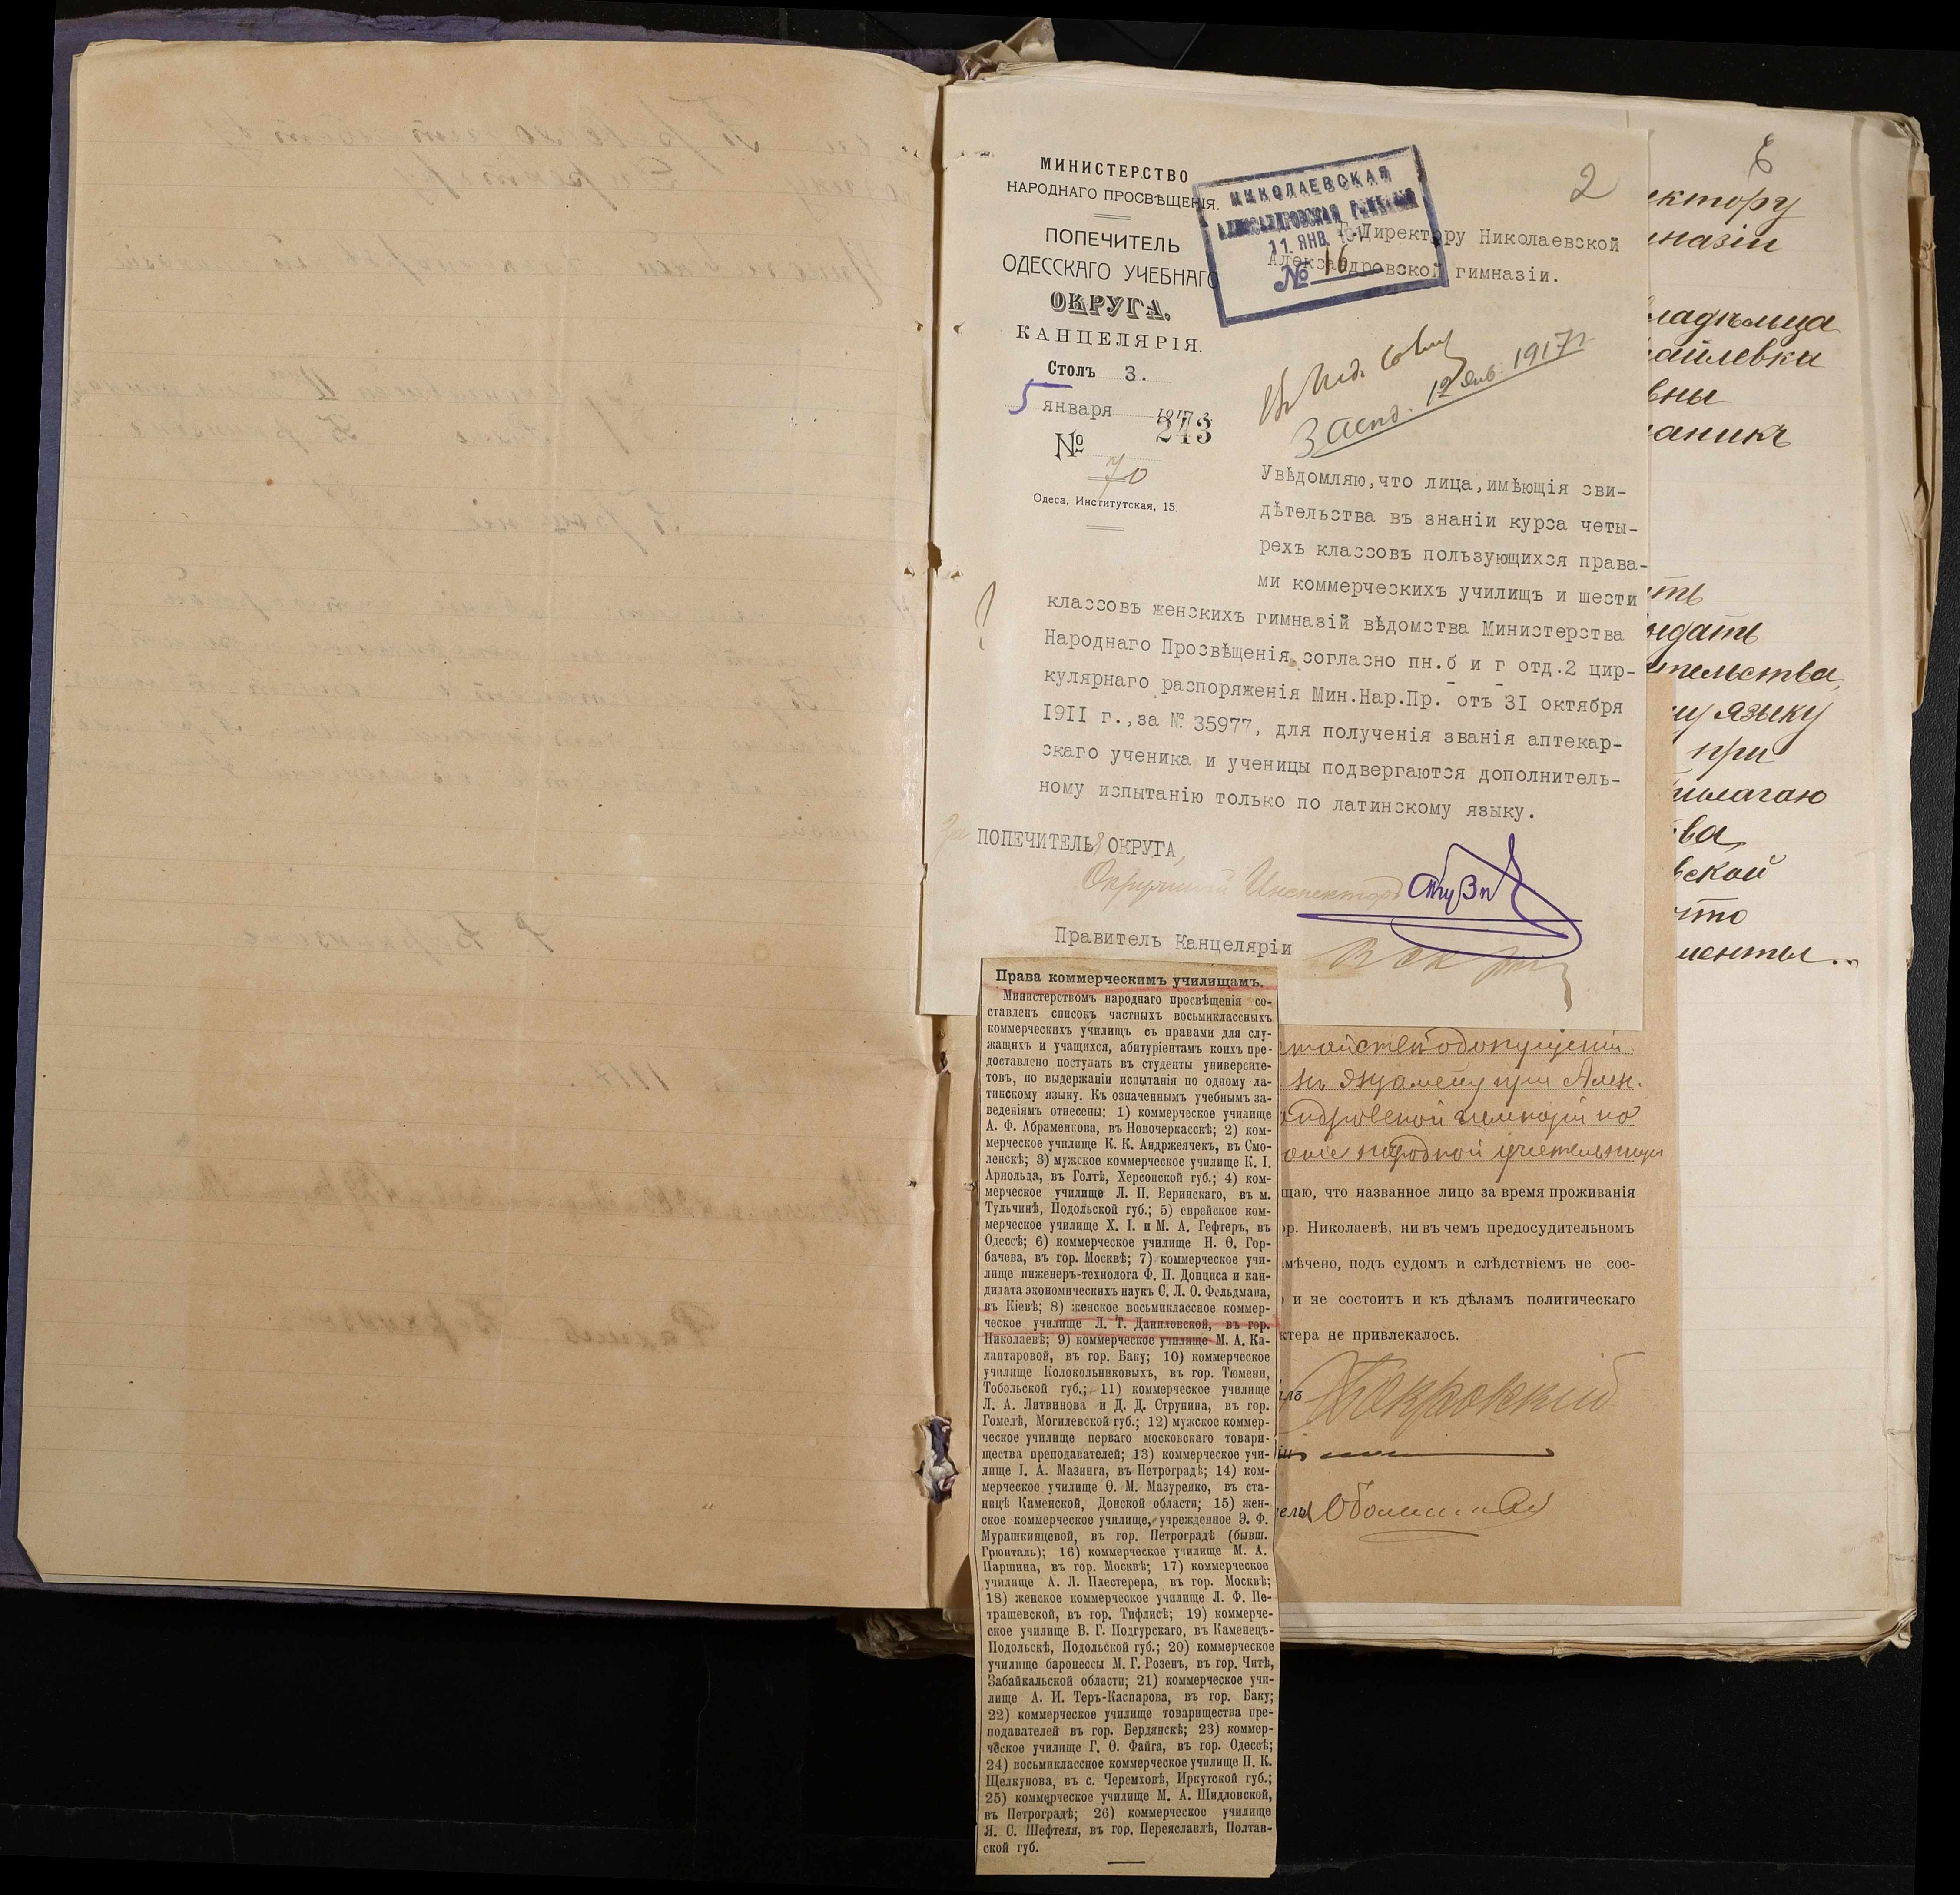 МИНИСТЕРСТВО
НАРОДНАГО ПРОСВѢЩЕНІЯ.
ПОПЕЧИТЕЛЬ
ОДЕССКАГО УЧЕБНАГО
ОКРУГА.
КАНЦЕЛЯРІЯ.
Столъ 3.
5 января 1917 г.
243
№ 70
Одеса, Институтская, 15.
НИКОЛАЕВСКАЯ
АЛЕКСАНДРОВСКАЯ ГИМНАЗІЯ
11. ЯНВ. 1917
№ 16
2
Директору Николаевской
Александровской гимназіи.
12 Янв. 1917 г.
Увѣдомляю, что лица, имѣющія сви-
дѣтельства въ знаніи курса четы-
рехъ классовъ пользующихся права-
ми коммерческихъ училищъ и шести
классовъ женскихъ гимназій вѣдомства Министерства
Народнаго Просвѣщенія, согласно пн. б и г отд. 2 цир-
кулярнаго распоряженія Мин. Нар. Пр. отъ 31 октября
1911 г., за № 35977, для полученія званія аптекар-
скаго ученика и ученицы подвергаются дополнитель-
ному испытанію только по латинскому языку.
За ПОПЕЧИТЕЛЯ ОКРУГА,
Окружный Инспекторъ
Правитель Канцеляріи
Права коммерческимъ училищамъ.
Министерствомъ народнаго просвѣщенія со-
ставленъ списокъ частныхъ восьмиклассныхъ
коммерческихъ училищъ съ правами для слу-
жащихъ и учащихся, абитуріентамъ коихъ пре-
доставлено поступать въ студенты университе-
товъ, по выдержаніи испытанія по одному ла-
тинскому языку. Къ означеннымъ учебнымъ за-
веденіямъ отнесены: 1) коммерческое училище
А. Ф. Абраменкова, въ Новочеркасскѣ; 2) ком-
мерческое училище К. К. Андржеячекъ, въ Смо-
ленскѣ; 3) мужское коммерческое училище К. І.
Арнольда, въ Голтѣ, Херсонской губ.; 4) ком-
мерческое училище Л. П. Веринскаго, въ м.
Тульчинѣ, Подольской губ.; 5) еврейское ком-
мерческое училище Х. І. и М. А. Гефтеръ, въ
Одессѣ; 6) коммерческое училище Н. Ѳ. Гор-
бачева, въ гор. Москвѣ; 7) коммерческое учи-
лище инженеръ-технолога Ф. П. Донциса и кан-
дидата экономическихъ наукъ С. Л. О. Фельдмана,
въ Кіевѣ; 8) женское восьмиклассное коммер-
ческое училище Л. Т. Даниловской, въ гор.
Николаевѣ; 9) коммерческое училище М. А. Ка-
лантаровой, въ гор. Баку; 10) коммерческое
училище Колокольниковыхъ, въ гор. Тюмени,
Тобольской губ.; 11) коммерческое училище
Л. А. Литвинова и Д. Д. Струнина, въ гор.
Гомелѣ, Могилевской губ.; 12) мужское коммер-
ческое училище перваго московскаго товари-
щества преподавателей; 13) коммерческое учи-
лище І. А. Мазинга, въ Петроградѣ; 14) ком-
мерческое училище Ѳ. М. Мазуренко, въ ста-
ницѣ Каменской, Донской области; 15) жен-
ское коммерческое училище, учрежденное Э. Ф.
Мурашкинцевой, въ гор. Петроградѣ (бывш.
Грюнталь); 16) коммерческое училище М. А.
Паршина, въ гор. Москвѣ; 17) коммерческое
училище А. Л. Плестерера, въ гор. Москвѣ;
18) женское коммерческое училище Л. Ф. Пе-
трашевской, въ гор. Тифлисѣ; 19) коммерче-
ское училище В. Г. Подгурскаго, въ Каменецъ-
Подольскѣ, Подольской губ.; 20) коммерческое
училище баронессы М. Г. Розенъ, въ гор. Читѣ,
Забайкальской области; 21) коммерческое учи-
лище А. И. Теръ-Каспарова, въ гор. Баку;
22) коммерческое училище товарищества пре-
подавателей въ гор. Бердянскѣ; 23) коммер-
ческое училище Г. Ѳ. Файга, въ гор. Одессѣ;
24) восьмиклассное коммерческое училище П. К.
Щелкунова, въ с. Черемховѣ, Иркутской губ.;
25) коммерческое училище М. А. Шидловской,
въ Петроградѣ; 26) коммерческое училище
Я. С. Шефтеля, въ гор. Переяславлѣ, Полтав-
ской губ.
къ экзамену при Алек-
сандровской гимназіи на
народной учительницы
щаю, что названное лицо за время проживанія
ор. Николаевѣ, ни въ чемъ предосудительномъ
мѣчено, подъ судомъ и слѣдствіемъ не сос-
и не состоитъ и къ дѣламъ политическаго
ктера не привлекалось.
ектору
мназіи
ладѣльца
айлевка
вны
аникъ
ить
ыдать
тельства,
му языку
при
рилагаю
ва,
вской
что
менты...